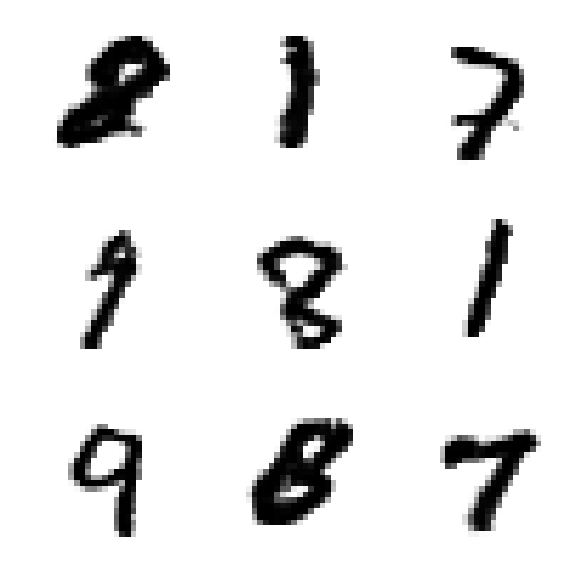 8 1 7
9 8 1
9 8 7